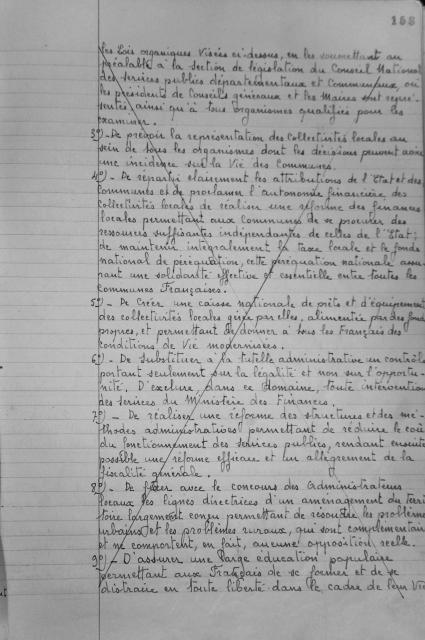 158
les Lois organiques Visées ci-dessus, en les soumettant au
préalable à la section de législation du Conseil National
des services publics départementaux et Communaux, où
les présidents de Conseils généraux et les Maires sont repré-
sentés, ainsi qu'à tous organismes qualifiés pour les
examiner.
3º) - De prévoir la représentation des Collectivités locales au
sein de tous les organismes dont les décisions peuvent avoir
une incidence sur la Vie des Communes.
4º) - De répartir clairement les attributions de l'Etat et des
Communes et de proclamer l'autonomie financière des
Collectivités locales de réaliser une réforme des finances
locales permettant aux Communes de se procurer des
ressources suffisantes indépendantes de celles de l'Etat;
de maintenir intégralement la taxe locale et le fonds
national de péréquation, cette péréquation nationale assu-
rant une solidarité effective et essentielle entre toutes les
Communes Françaises.
5º) - De Créer une caisse nationale de prêts et d'équipement
des collectivités locales gérée par elles, alimentée par des fonds
propres, et permettant de donner à tous les Français des
conditions de Vie modernisées.
6º) - De substituer à la tutelle administrative un contrôle
portant seulement sur la légalité et non sur l'opportu-
nité, D'exclure, dans ce Domaine, toute intervention
des services du Ministère des Finances.
7º) - De réaliser une réforme des structures et des mé-
thodes administratives permettant de réduire le coût
du fonctionnement des services publics, rendant ensuite
possible une réforme efficace et un allègrement de la
fiscalité générale.
8º) - De fixer avec le concours des Administrateurs
locaux les lignes directrices d'un aménagement du terri-
toire largement conçu permettant de résoudre les problèmes
urbains et les problèmes ruraux, qui sont complémentaires
et ne comportent, en fait, aucune opposition réelle.
9º) - D'assurer une large éducation populaire
permettant aux Français de se former et de se
distraire en toute liberté dans le cadre de leur Vie